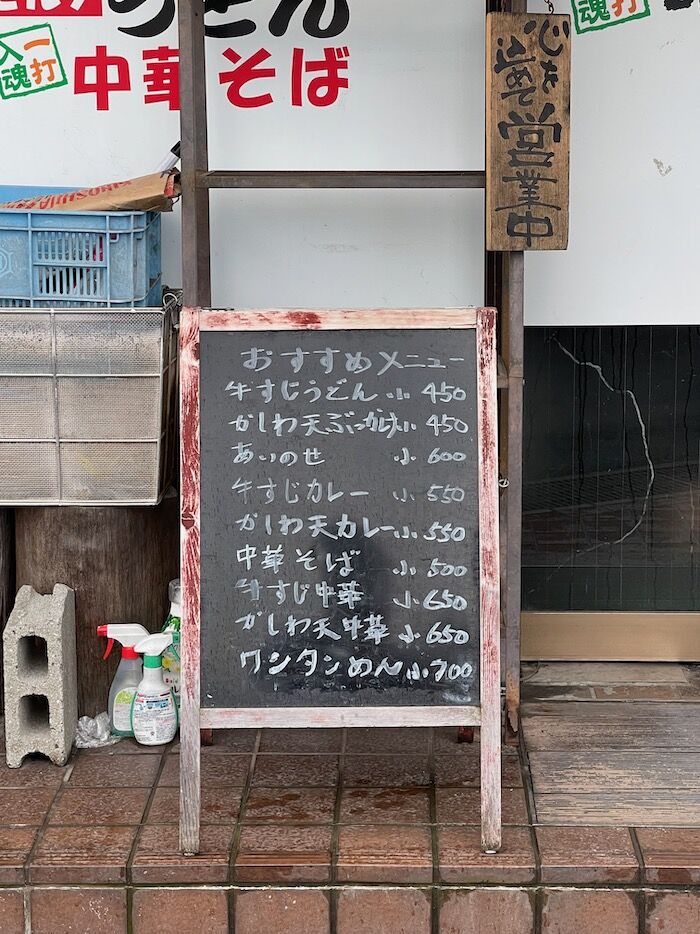 うどん
一打
入魂
中華そば
一打
入魂
心を
込めて
営業中
おすすめメニュー
牛すじうどん 小 450
かしわ天ぶっかけ小 450
あいのせ 小 600
牛すじカレー 小 550
かしわ天カレー小 550
中華そば 小 500
牛すじ中華 小 650
かしわ天中華 小 650
ワンタンめん小 700